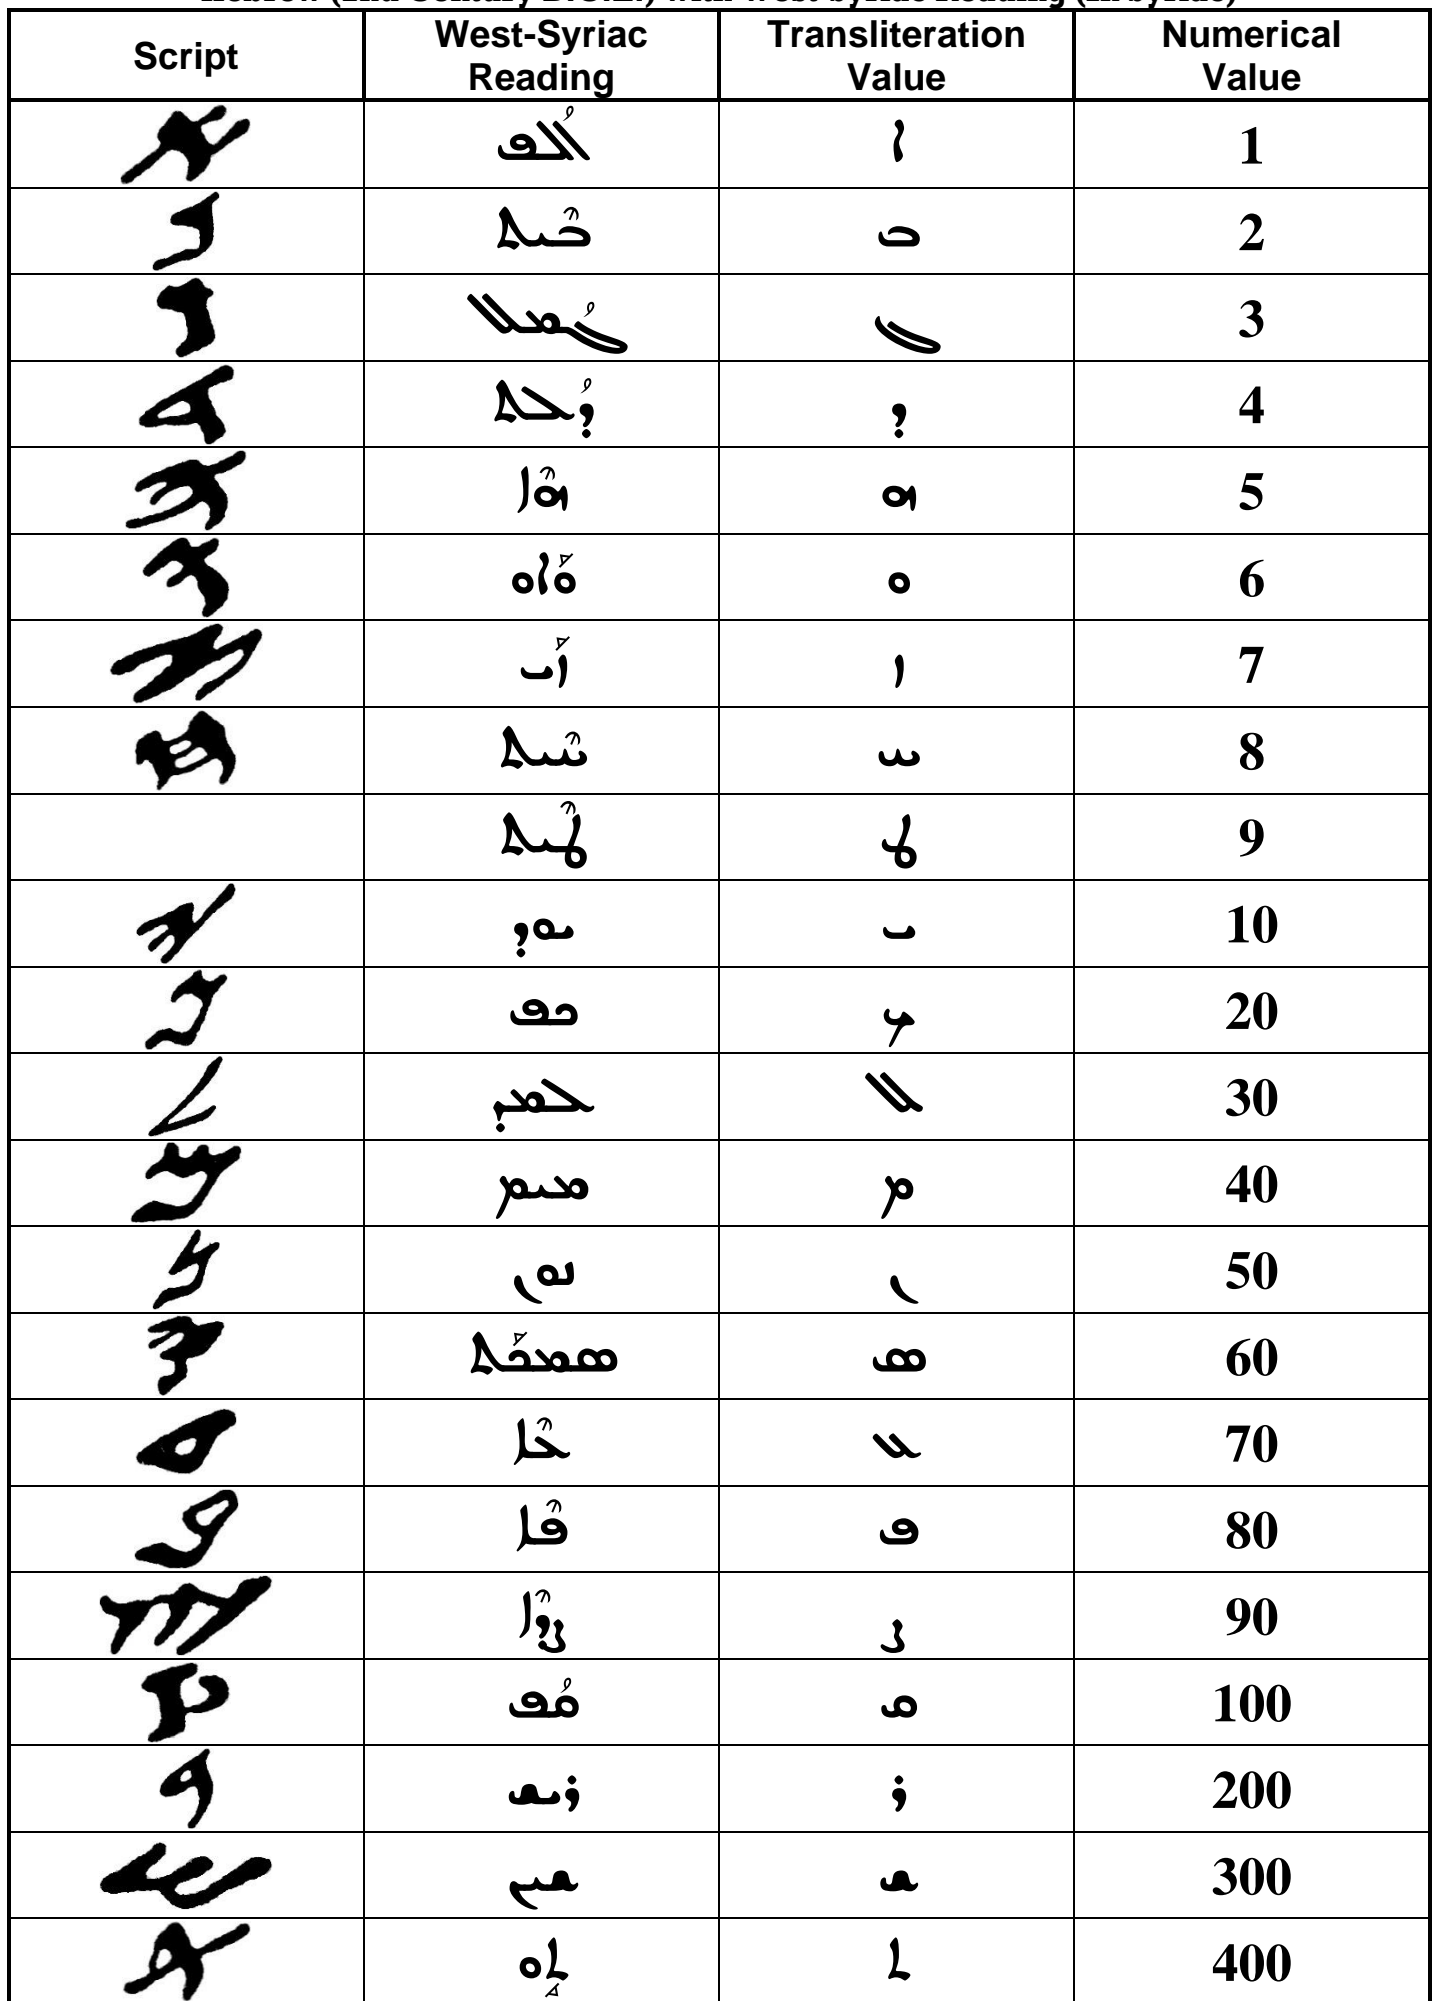 Script West-Syriac Reading Transliteration Value Numerical Value
ܐܳܠܦ ܐ 1
ܒܶܝܬ ܒ 2
ܓܳܡܠ ܓ 3
ܕܳܠܬ ܕ 4
ܗܶܐ ܗ 5
ܘܰܐܘ ܘ 6
ܙܰܝ ܙ 7
ܚܶܝܬ ܚ 8
ܛܶܝܬ ܛ 9
ܝܘܕ ܝ 10
ܟܦ ܟ 20
ܠܡܕ ܠ 30
ܡܝܡ ܡ 40
ܢܘܢ ܢ 50
ܣܡܟܰܬ ܣ 60
ܥܶܐ ܥ 70
ܦܶܐ ܦ 80
ܨܕܶܐ ܨ 90
ܩܳܦ ܩ 100
ܪܝܫ ܪ 200
ܫܝܢ ܫ 300
ܬܱܘ ܬ 400